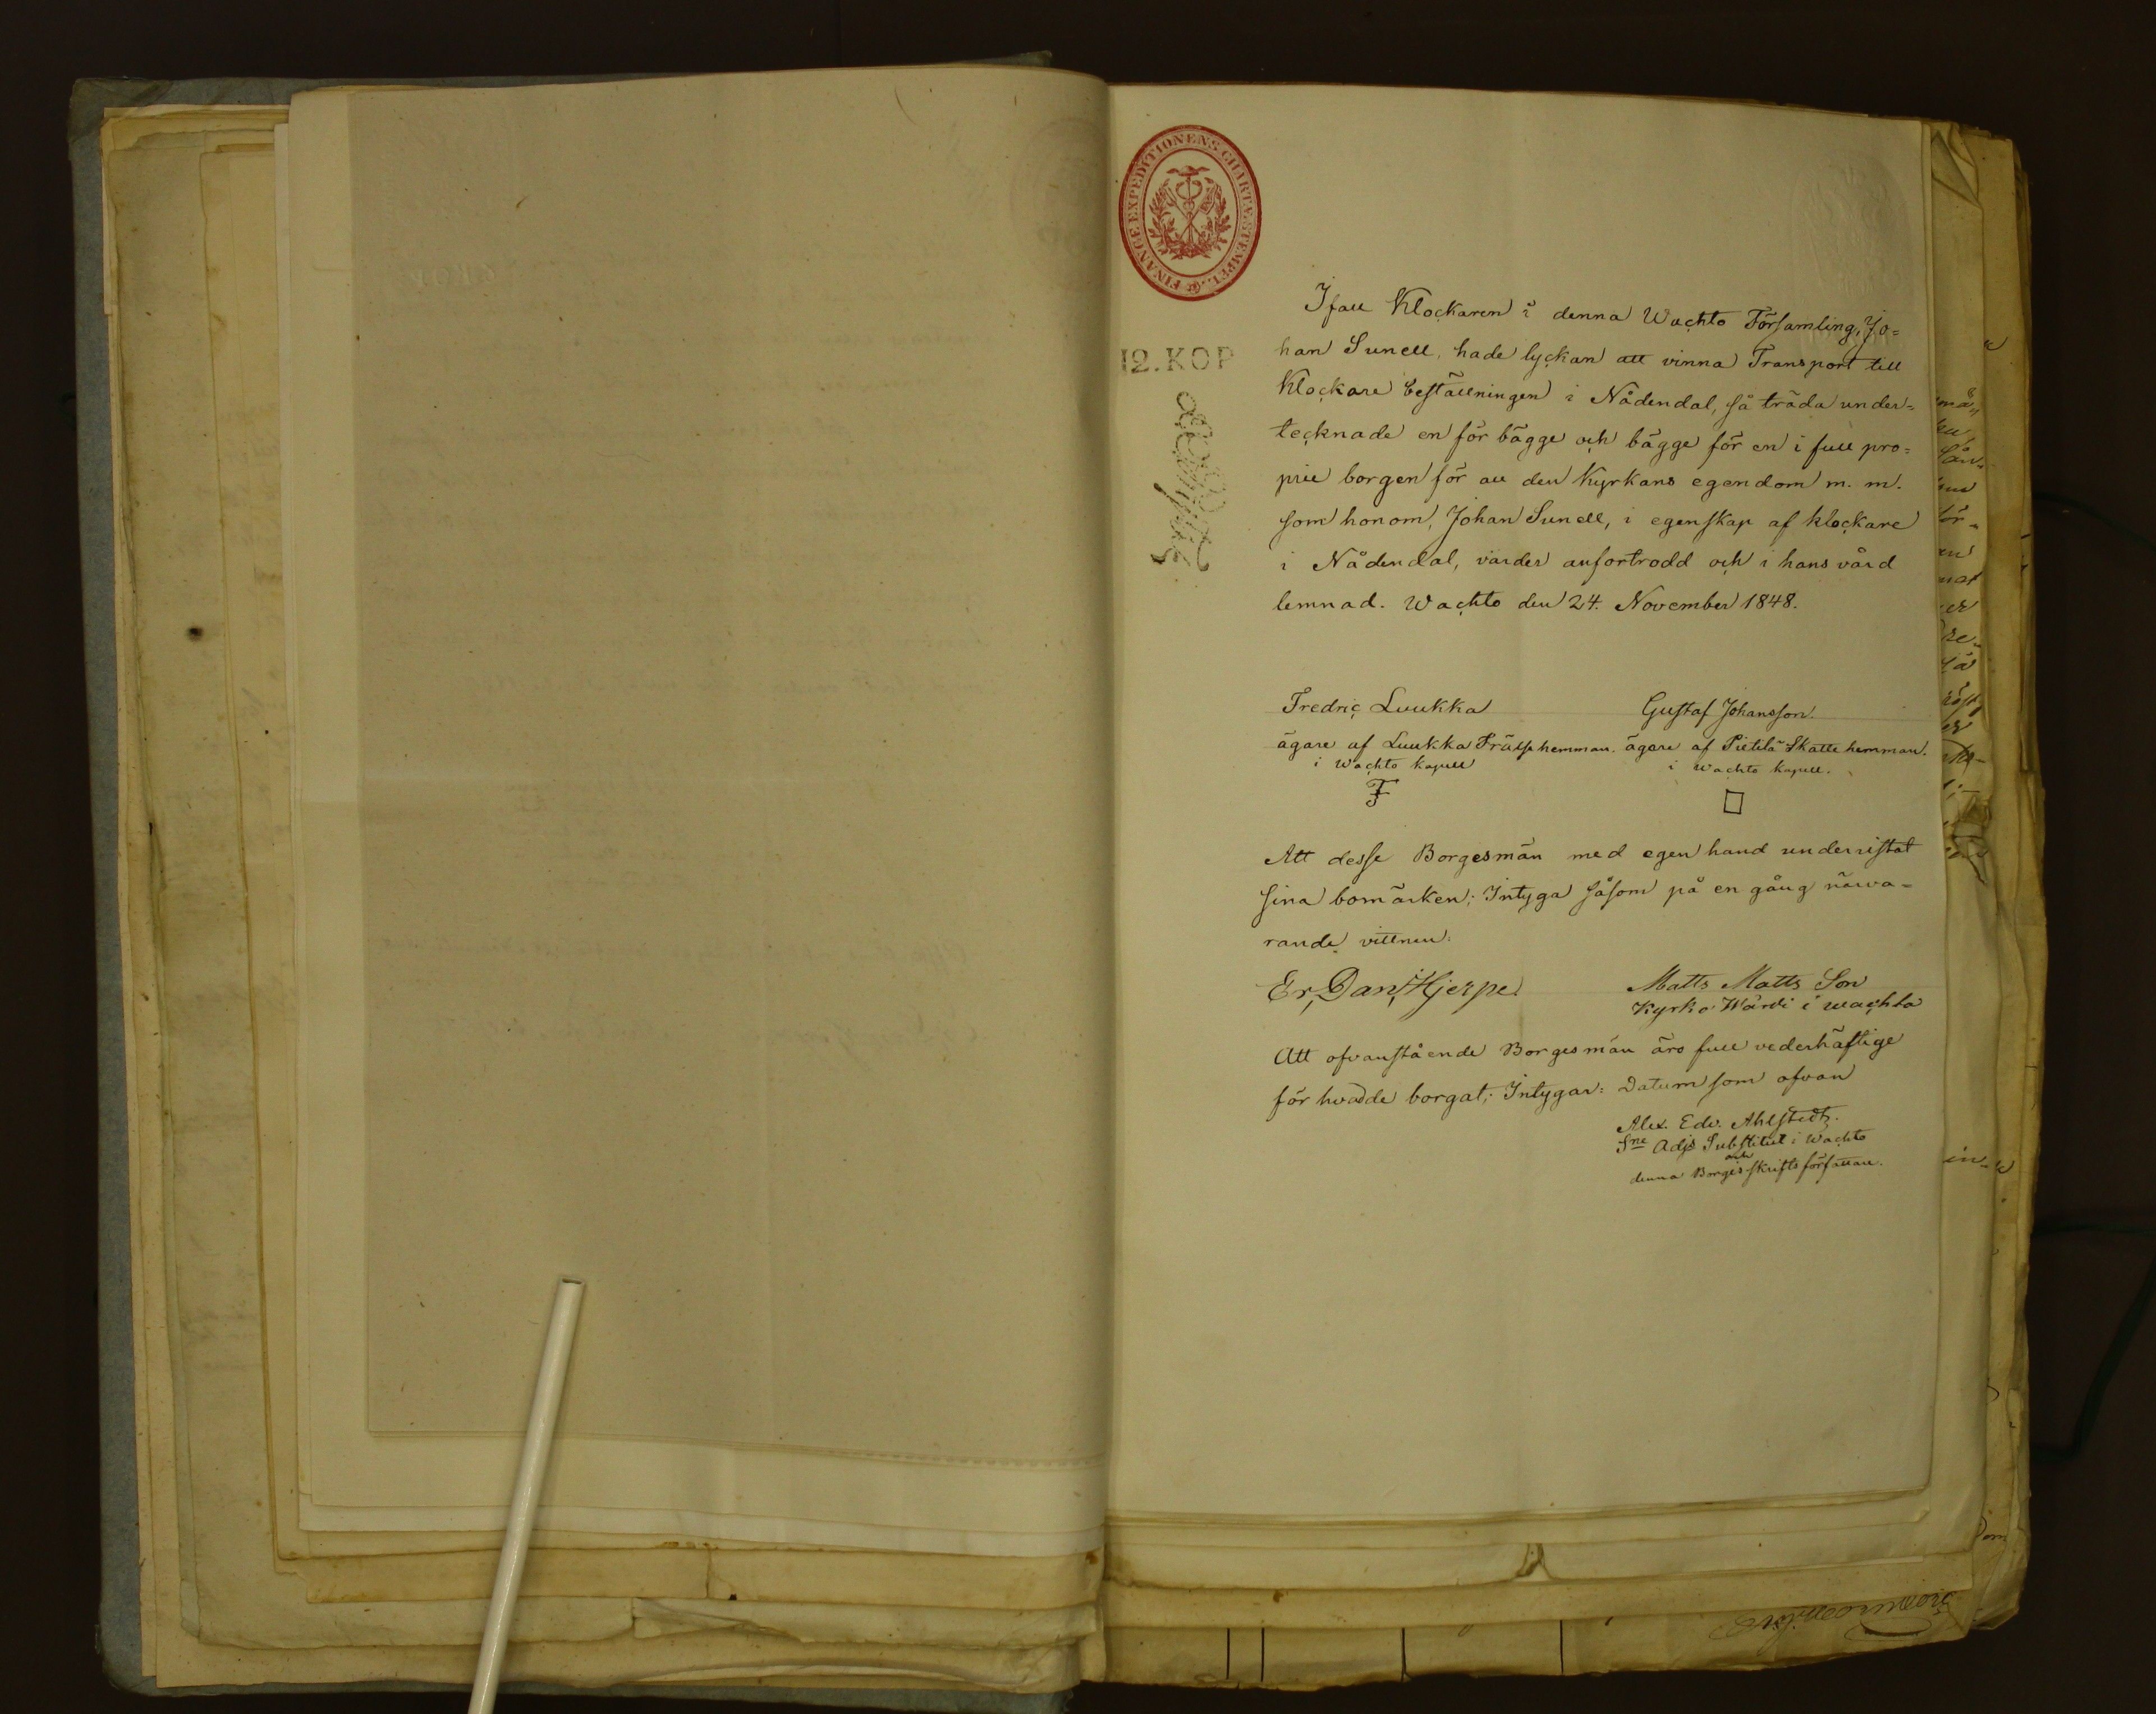 FINANCE EXPEDITIONENS CHARTÆ STEMPEL.
12. KOP
Ifall Klockaren i denna Wachto Församling, Jo=
han Sunell, hade lyckan att vinna Transport till
Klockare beställningen i Nådendal, så träda under=
tecknade en för bägge och bägge för en i full pro=
prie borgen för all den Kyrkans egendom m. m.
som honom, Johan Sunell, i egenskap af klockare
i Nådendal, varder anfortrodd och i hans vård
lemnad. Wachto den 24. November 1848.
Fredric Luukka
ägare af Luukka Frälse hemman.
i Wachto Kapell
F
Gustaf Johansson.
ägare af Pietilä Skatte hemman.
i Wachto Kapell.
Att desse Borgesmän med egen hand underristat
sina bomärken; Intyga såsom på en gång närva=
rande vittnen:
Er, Dan, Hjerpe
Matts Matts Son
Kyrko Wärdi i wachto
Att ofvanstående Borgesmän äro full vederhäftige
för hvad de borgat; Intygar: Datum som ofvan
Alex. Edv. Ahlstedt.
Sne Adjs Substitut i Wachto
och
denna Borgisskrifts författare.